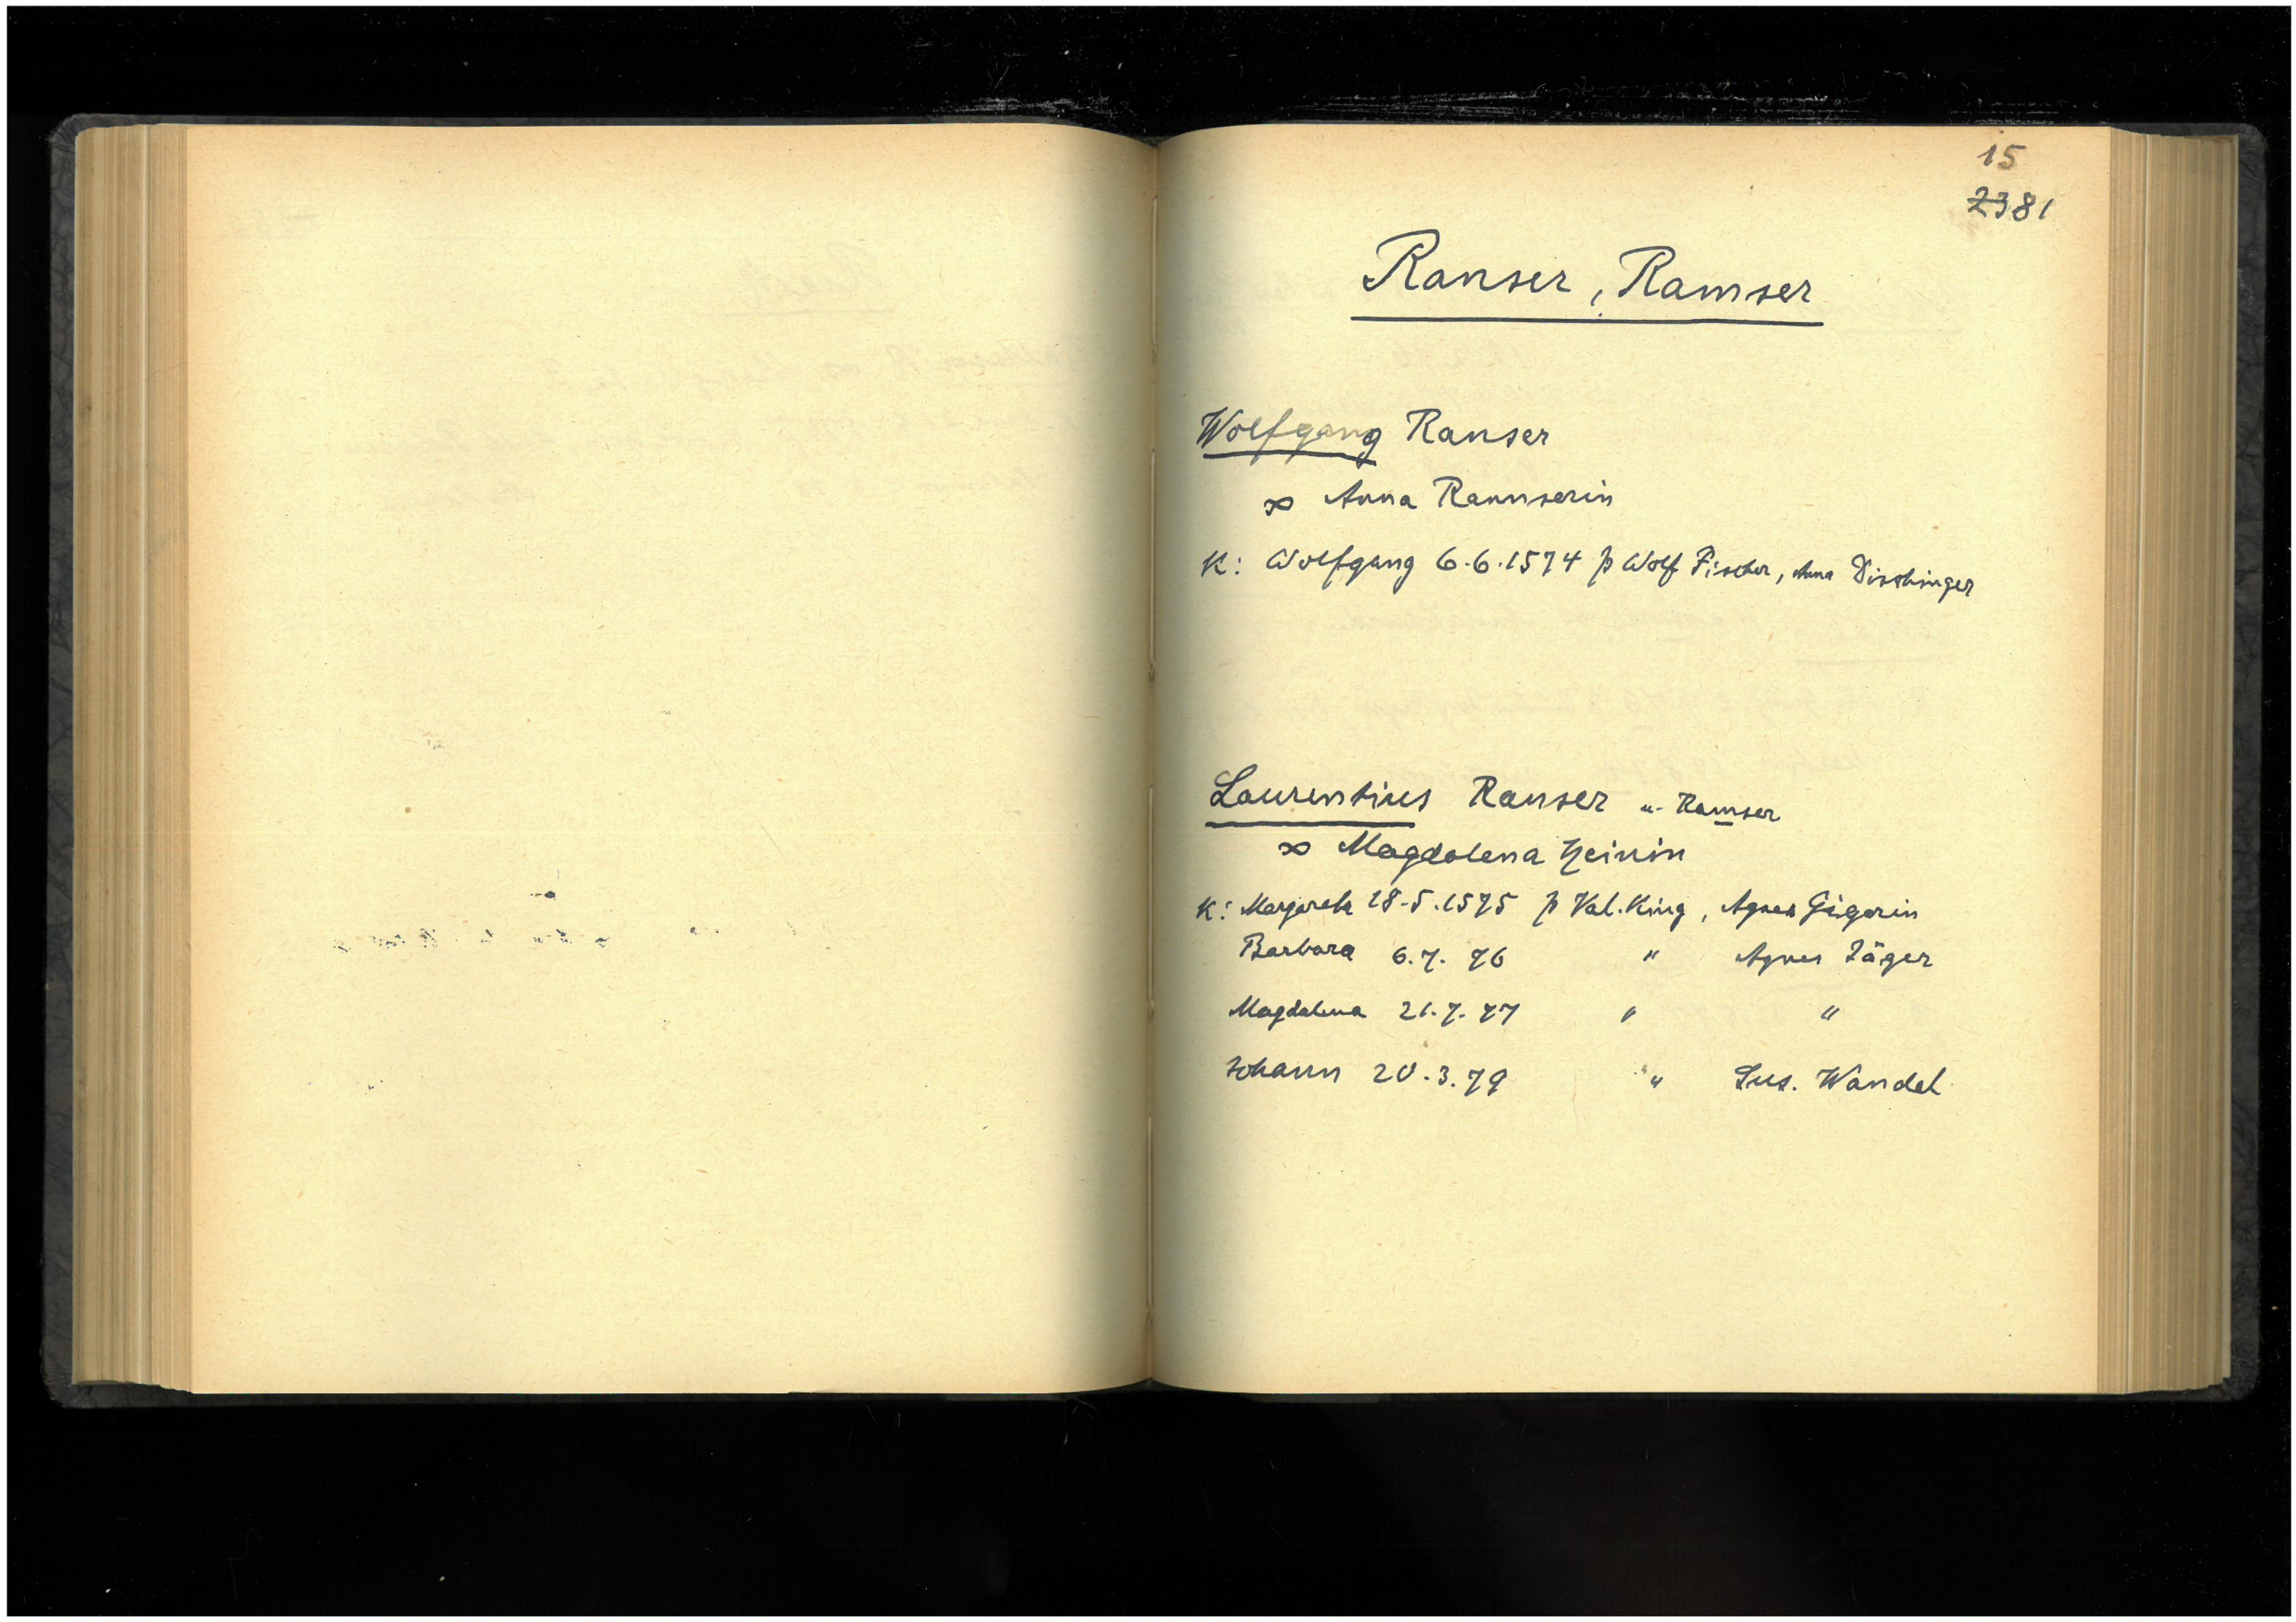 15
2381
Ranser, Ramser
Wolfgang Ranser
∞ Anna Rannserin
K: Wolfgang 6.6.1574 p Wolf Fischer, Anna Dischinger
Laurentius Ranser u. Ramser
∞ Magdalena Heinin
K: Margareta 18.5.1575 p Val. King, Agnes Gigerin
Barbara 6.7.76 " Agnes Jäger
Magdalena 21.7.77 " "
Johann 20.3.79 " Sus. Wandel